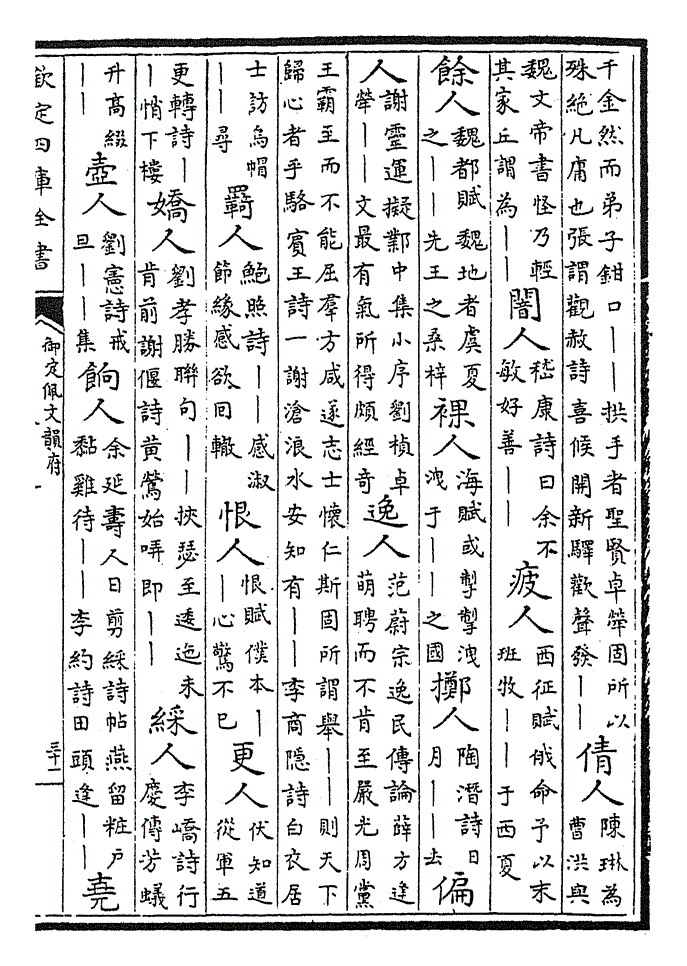 千金然而弟子鉗口——拱手者聖賢卓犖固所以
殊絕凡庸也張謂觀赦詩喜候開新驛歡聲發——
倩人
陳琳為
曹洪與
魏文帝書怪乃輕
其家丘謂為——
闇人
嵇康詩曰余不
敏好善——
疲人
西征賦俄命予以末
班牧——于西夏
餘人
魏都賦魏地者虞夏
之——先王之桑梓
裸人
海賦或掣掣洩
洩于——之國
擲人
陶潛詩日
月——去
偏
人
謝靈運擬鄴中集小序劉楨卓
犖——文最有氣所得頗經奇
逸人
范蔚宗逸民傳論薛方逢
萌聘而不肯至嚴光周黨
王霸至而不能屈羣方咸遂志士懷仁斯固所謂舉——則天下
歸心者乎駱賓王詩一謝滄浪水安知有——李商隱詩白衣居
士訪烏帽
——尋
羇人
鮑照詩——感淑
節緣感欲回轍
恨人
恨賦僕本—
—心驚不已
更人
伏知道
從軍五
更轉詩—
—悄下樓
嬌人
劉孝勝聯句——挾瑟至逶迤未
肯前謝偃詩黃鶯始哢即——
綵人
李嶠詩行
慶傳芳蟻
升高綴
——
壺人
劉憲詩戒
旦——集
餉人
余延壽人日剪綵詩帖燕留粧戶
黏雞待——李約詩田頭逢——
堯
欽定四庫全書
御定佩文韻府
三十一